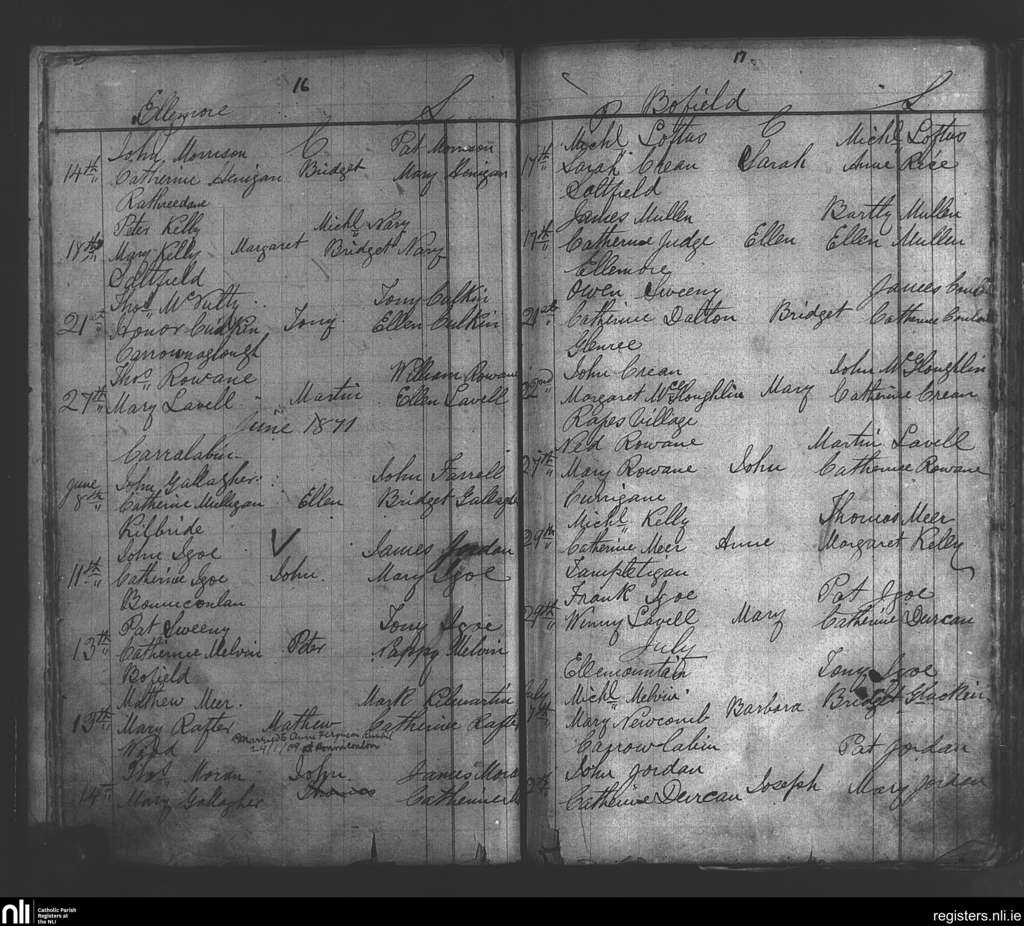 16
Ellemore S
John Morrison C Pat Morrison
14th Catherine Henigan Bridget Mary Henigan
Rathreedane
Peter Kelly Michl Nary
18th Mary Kelly Margaret Bridget Nary
Saltfield
Thos McNulty Tony Culkin
21st Honor Culkin Tony Ellen Culkin
Carrownaglough
Thos Rowane William Rowane
27th Mary Lavell Martin Ellen Lavell
June 1871
Carralabin
John Gallagher John Farrell
June 8th Catherine Mulligan Ellen Bridget Gallagher
Kilbride
John Igoe V James Jordan
11th Catherine Igoe John Mary Igoe
Bonniconlan
Pat Sweeny Tony Igoe
13th Catherine Melvin Peter Nappy Melvin
Bofield
Mathew Meer Mark Kilmartin
13th Mary Rafter Mathew Catherine Rafter
Married to Anne Ferguson
24/1/09 at Bonniconlon
Thos Moran John James Moran
14th Mary Gallagher Thomas Catherine
17
P Bofield S
Michl Loftus C Michl Loftus
17th Sarah Crean Sarah Anne Rice
Saltfield
James Mullen Bartly Mullen
17th Catherine Judge Ellen Ellen Mullen
Ellemore
Owen Sweeny James
21st Catherine Dalton Bridget Catherine
Glenree
John Crean John McGloughlin
22nd Margaret McGloughlin Mary Catherine Crean
Rapes Village
Ned Rowane Martin Lavell
27th Mary Rowane John Catherine Rowane
Currigane
Michl Kelly Thomas Meer
29th Catherine Meer Anne Margaret Kelly
Tampletigan
Frank Igoe Pat Igoe
29th Winny Lavell Mary Catherine Durcan
July
Ellemountain Tony Igoe
July Michl Melvin Bridget
7th Mary Newcomb Barbora
Carrowlabin Pat Jordan
John Jordan
Catherine Durcan Joseph Mary Jordan
nli
Catholic Parish
Registers at
the NLI
registers.nli.ie